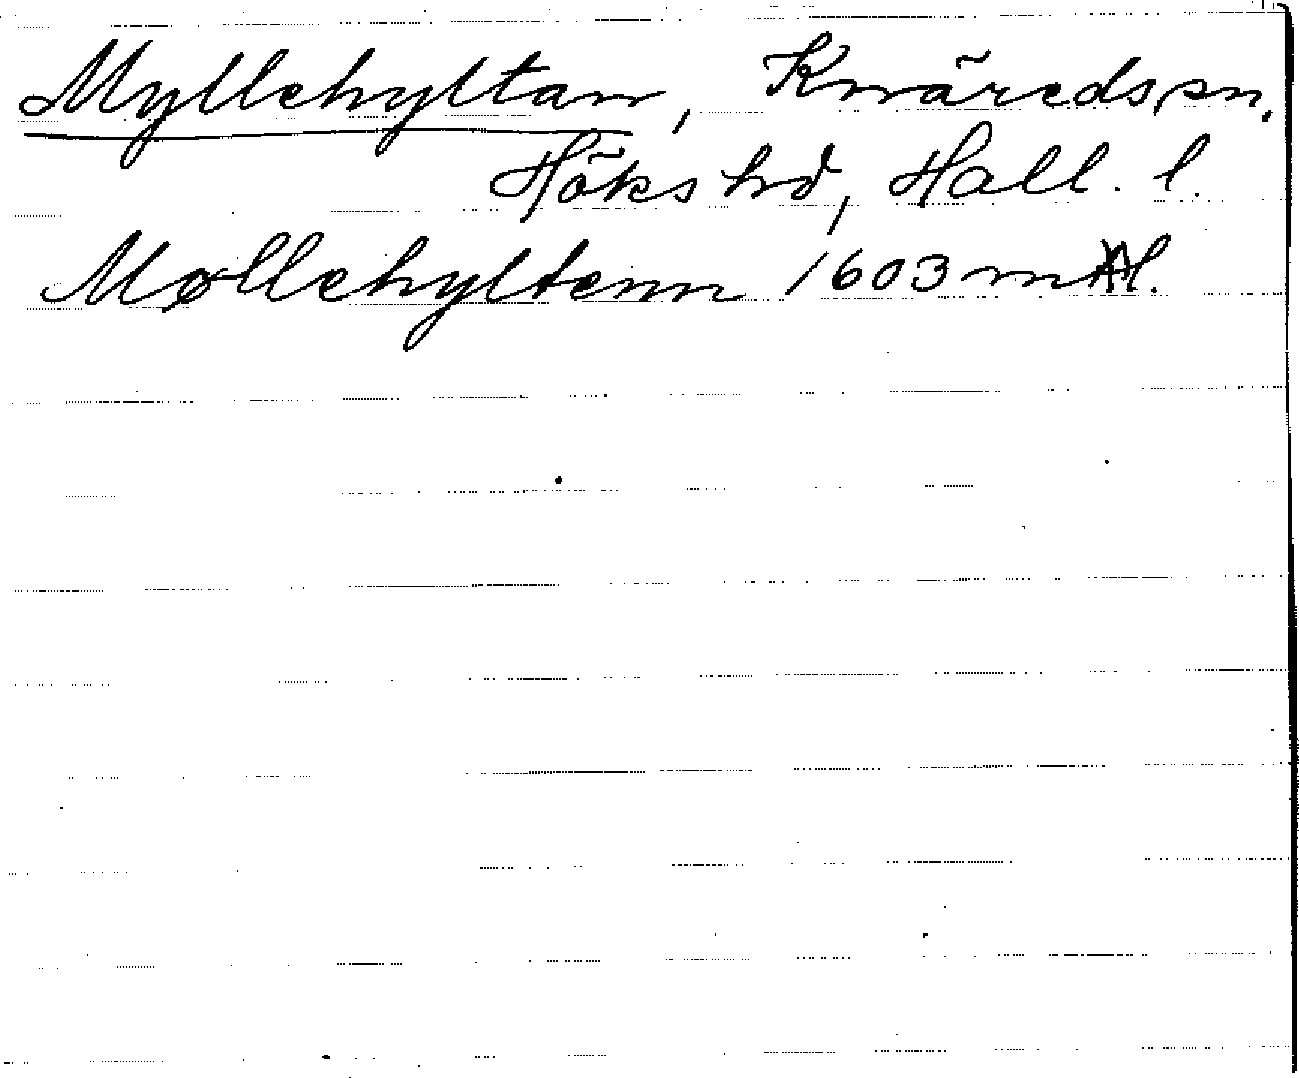 Myllehyltan, Knäreds sn.
Höks hd, Hall. l.
Møllehyltenn 1603 m